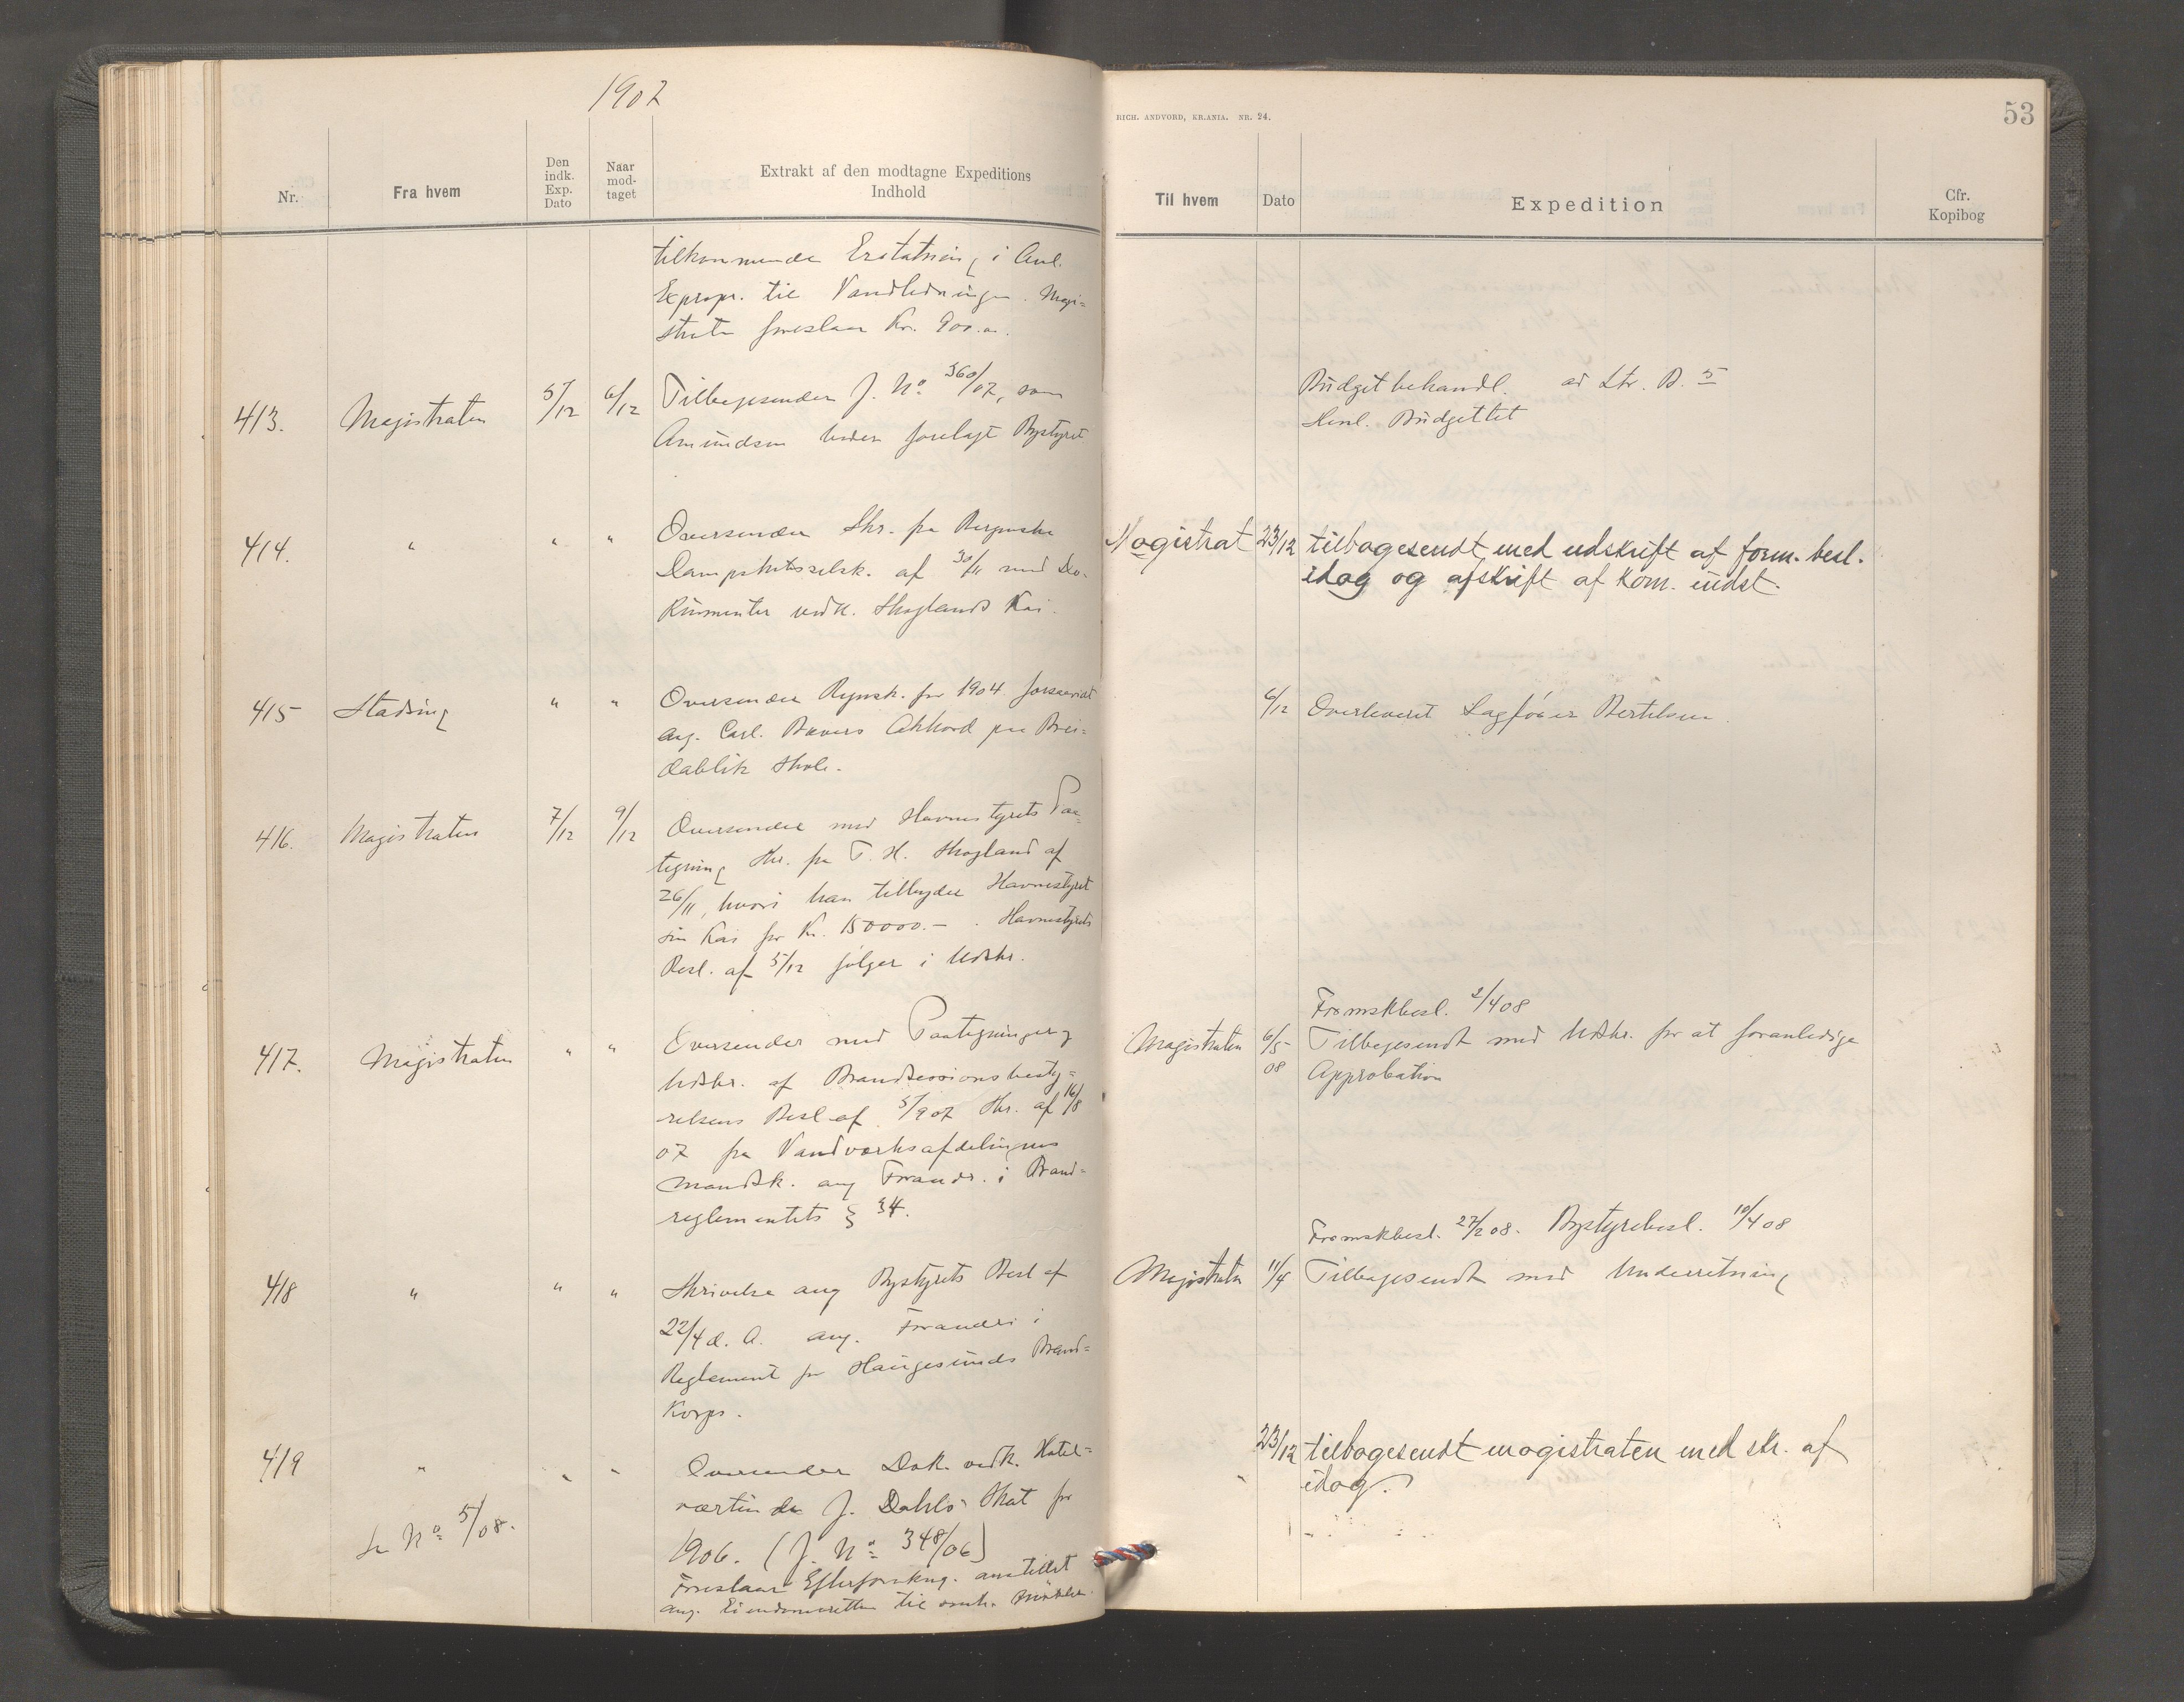 1907
Nr.
Fra hvem
Den indk. Exp. Dato
Naar mod-taget
Extrakt af den modtagne Expeditions
Indhold
tilkommende Erstatning i Anl.
Expropr. til Vandledningen. Magi=
straten foreslaar Kr. 900.
413. Magistraten 5/12 6/12 Tilbagesender J. No. 360/07, som
Amundsen forelagt Bystyret
414. " " " Oversender Skr. fra Bergenske
Dampskibsselsk. af 30/11 med Do-
kumenter vedk. Skoglands Kai.
415 Stadsing " " Oversender Rynsk. for 1904
ang. Carl. Akkord paa Brei=
dablik Skole.
416. Magistraten 7/12 9/12 Oversender med Havnestyrets Paa=
tegning Skr. fra T. H. Skogland af
26/11, hvori han tilbyder Havnestyret
sin Kai for Kr. 150000.- . Havnestyrets
Besl. af 5/12 følger i Udskr.
417. Magistraten " " Oversender med Paategninger
Udskr. af Brandsessionsbesty=
relsens Besl. af 5/9 07 Skr. af 16/8
07 fra Vandværksafdelingens
Mandsk. ang Forandr. i Brand=
reglementets § 34.
418 " " " Skrivelse ang Bystyrets Besl af
22/4 d. A. ang. Forandr i
Reglement for Haugesunds Brand=
Korps.
419 " " " Oversender Dok. vedk. Hotel=
værtinde J. Dahls Skat for
Se No. 5/08.
1906. (J. No. 348/06)
Foreslaar Efterforskng. anstillet
ang. Eiendomsretten til omh.
RICH. ANDVORD, KR.ANIA. NR. 24.
53
Til hvem
Dato
Expedition
Cfr.
Kopibog
Budgetbehandl. ad Ltr. B. 5
Henl. Budgettet
Magistrat 23/12 tilbagesendt med udskrift af form. besl.
idag og afskrift af kom. indst.
6/12 Overleveret Sagfører Bertelsen.
Fromskbesl. 2/4 08
Magistraten 6/5 08 Tilbagesendt med Udskr. for at foranledige
Approbation
Fromskbesl. 27/2 08. Bystyrebesl. 10/4 08
Magistraten 11/4 Tilbagesendt med Underretning
23/12 tilbagesendt magistraten med skr. af
idag.